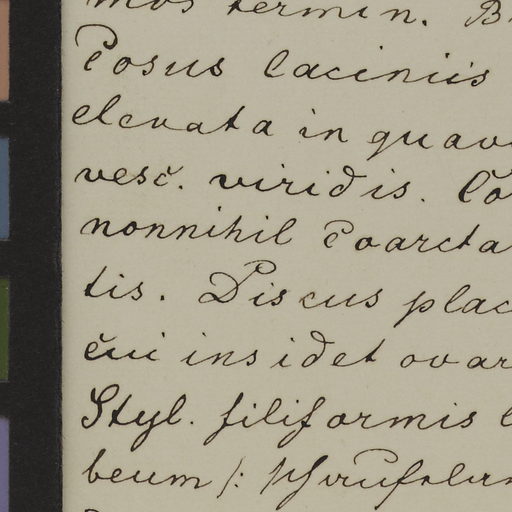 mos termin. B
Cosus laciniis
elevata in quav
vesc. viridis. Co
nonnihil coarcta
tis. Discus plac
cui insidet ovar
Styl. filiformis l
beum /: